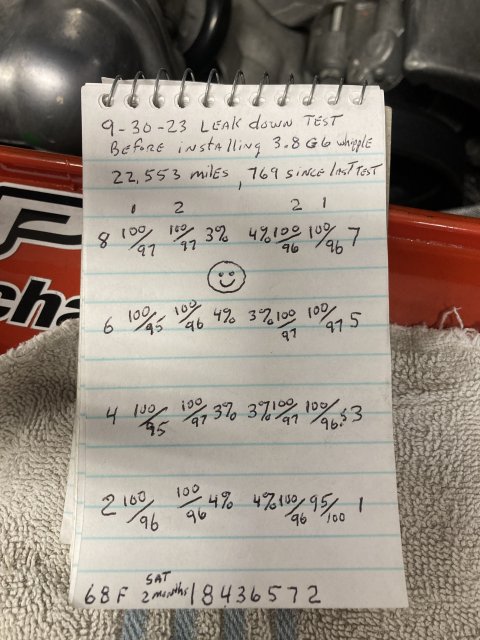 9-30-23 LEAK down TEST
BEFORE installing 3.8 G6 whipple
22,553 miles, 769 since last TEST
1 2 2 1
8 100/97 100/97 3% 4% 100/96 100/96 7
6 100/95 100/96 4% 3% 100/97 100/97 5
4 100/95 100/97 3% 3% 100/97 100/96.5 3
2 100/96 100/96 4% 4% 100/96 95/100 1
68F SAT 2 months 18436572
cha